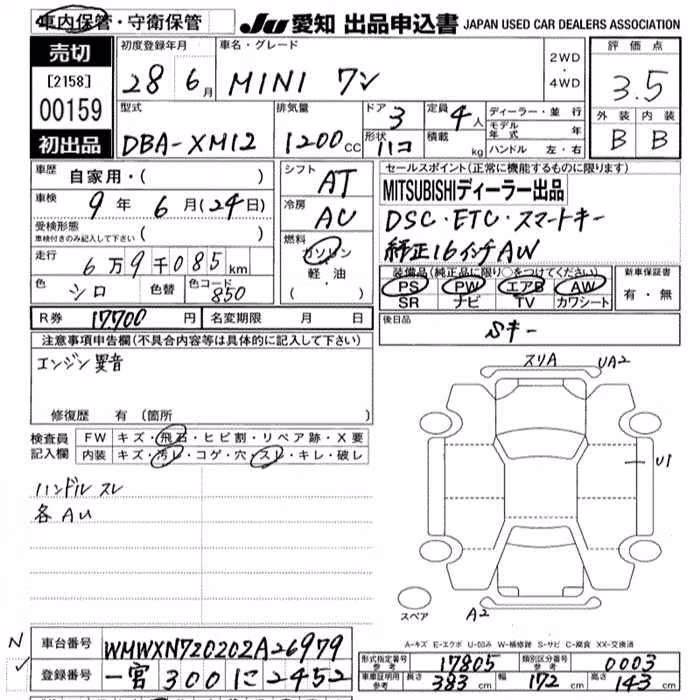 車内保管・守衛保管 JU 愛知 出品申込書 JAPAN USED CAR DEALERS ASSOCIATION
売切 [2158] 00159 初出品
初度登録年月 28 6月
車名・グレード MINI ワン
2WD・4WD
評価点 3.5
外装 B 内装 B
型式 DBA-XM12
排気量 1200cc
ドア 3 形状 ハコ
定員 4人 積載 kg
ディーラー・並行
モデル年式 年
ハンドル 左・右
車歴 自家用・( )
車検 9年6月(24日)
受検形態 車検付きのみ記入して下さい ( )
走行 6万9千085km
色 シロ 色替 色コード 850
シフト AT
冷房 AC
燃料 ガソリン 軽油 ( ・ )
セールスポイント(正常に機能するものに限ります)
MITSUBISHIディーラー出品
DSC・ETC・スマートキー
純正16インチAW
装備品(純正品に限り○をつけてください) 新車保証書
PS PW エアB AW 有・無
SR ナビ TV カワシート
R券 17700円 名変期限 月 日
後日品 Sキー
注意事項申告欄(不具合内容等は具体的に記入して下さい)
エンジン異音
修復歴 有 (箇所 )
検査員記入欄 FW キズ・飛石・ヒビ割・リペア跡・X要
内装 キズ・汚レ・コゲ・穴・スレ・キレ・破レ
ハンドル スレ
各AU
スリA UA2
U1
スペア A2
A-キズ E-エクボ U-凹み W-補修跡 S-サビ C-腐食 XX-交換済
N 車台番号 WMWXN720202A26979
✓ 登録番号 一宮 300 に 2452
形式指定番号 参考 17805 類別区分番号 参考 0003
車車証明用 参考 長さ 383cm 幅 172cm 高さ 143cm